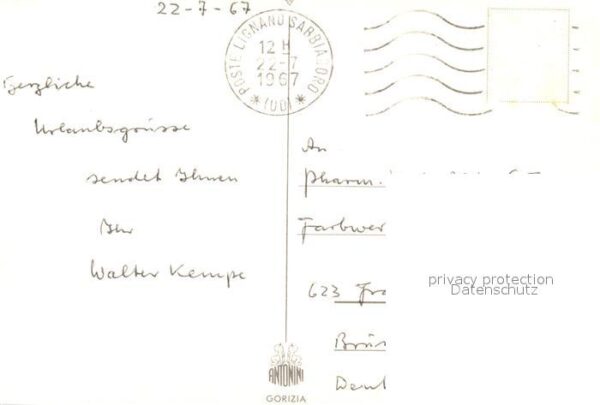 22-7-67
POSTE LIGNANO SABBIADORO
12 H
22-7
1967
(UD)
Herzliche
Urlaubsgrüsse
sendet Ihnen
Ihr
Walter Kempe
An
Pharm.
Farbwer
623 Fra
Brün
Deut
privacy protection
Datenschutz
ANTONINI
GORIZIA